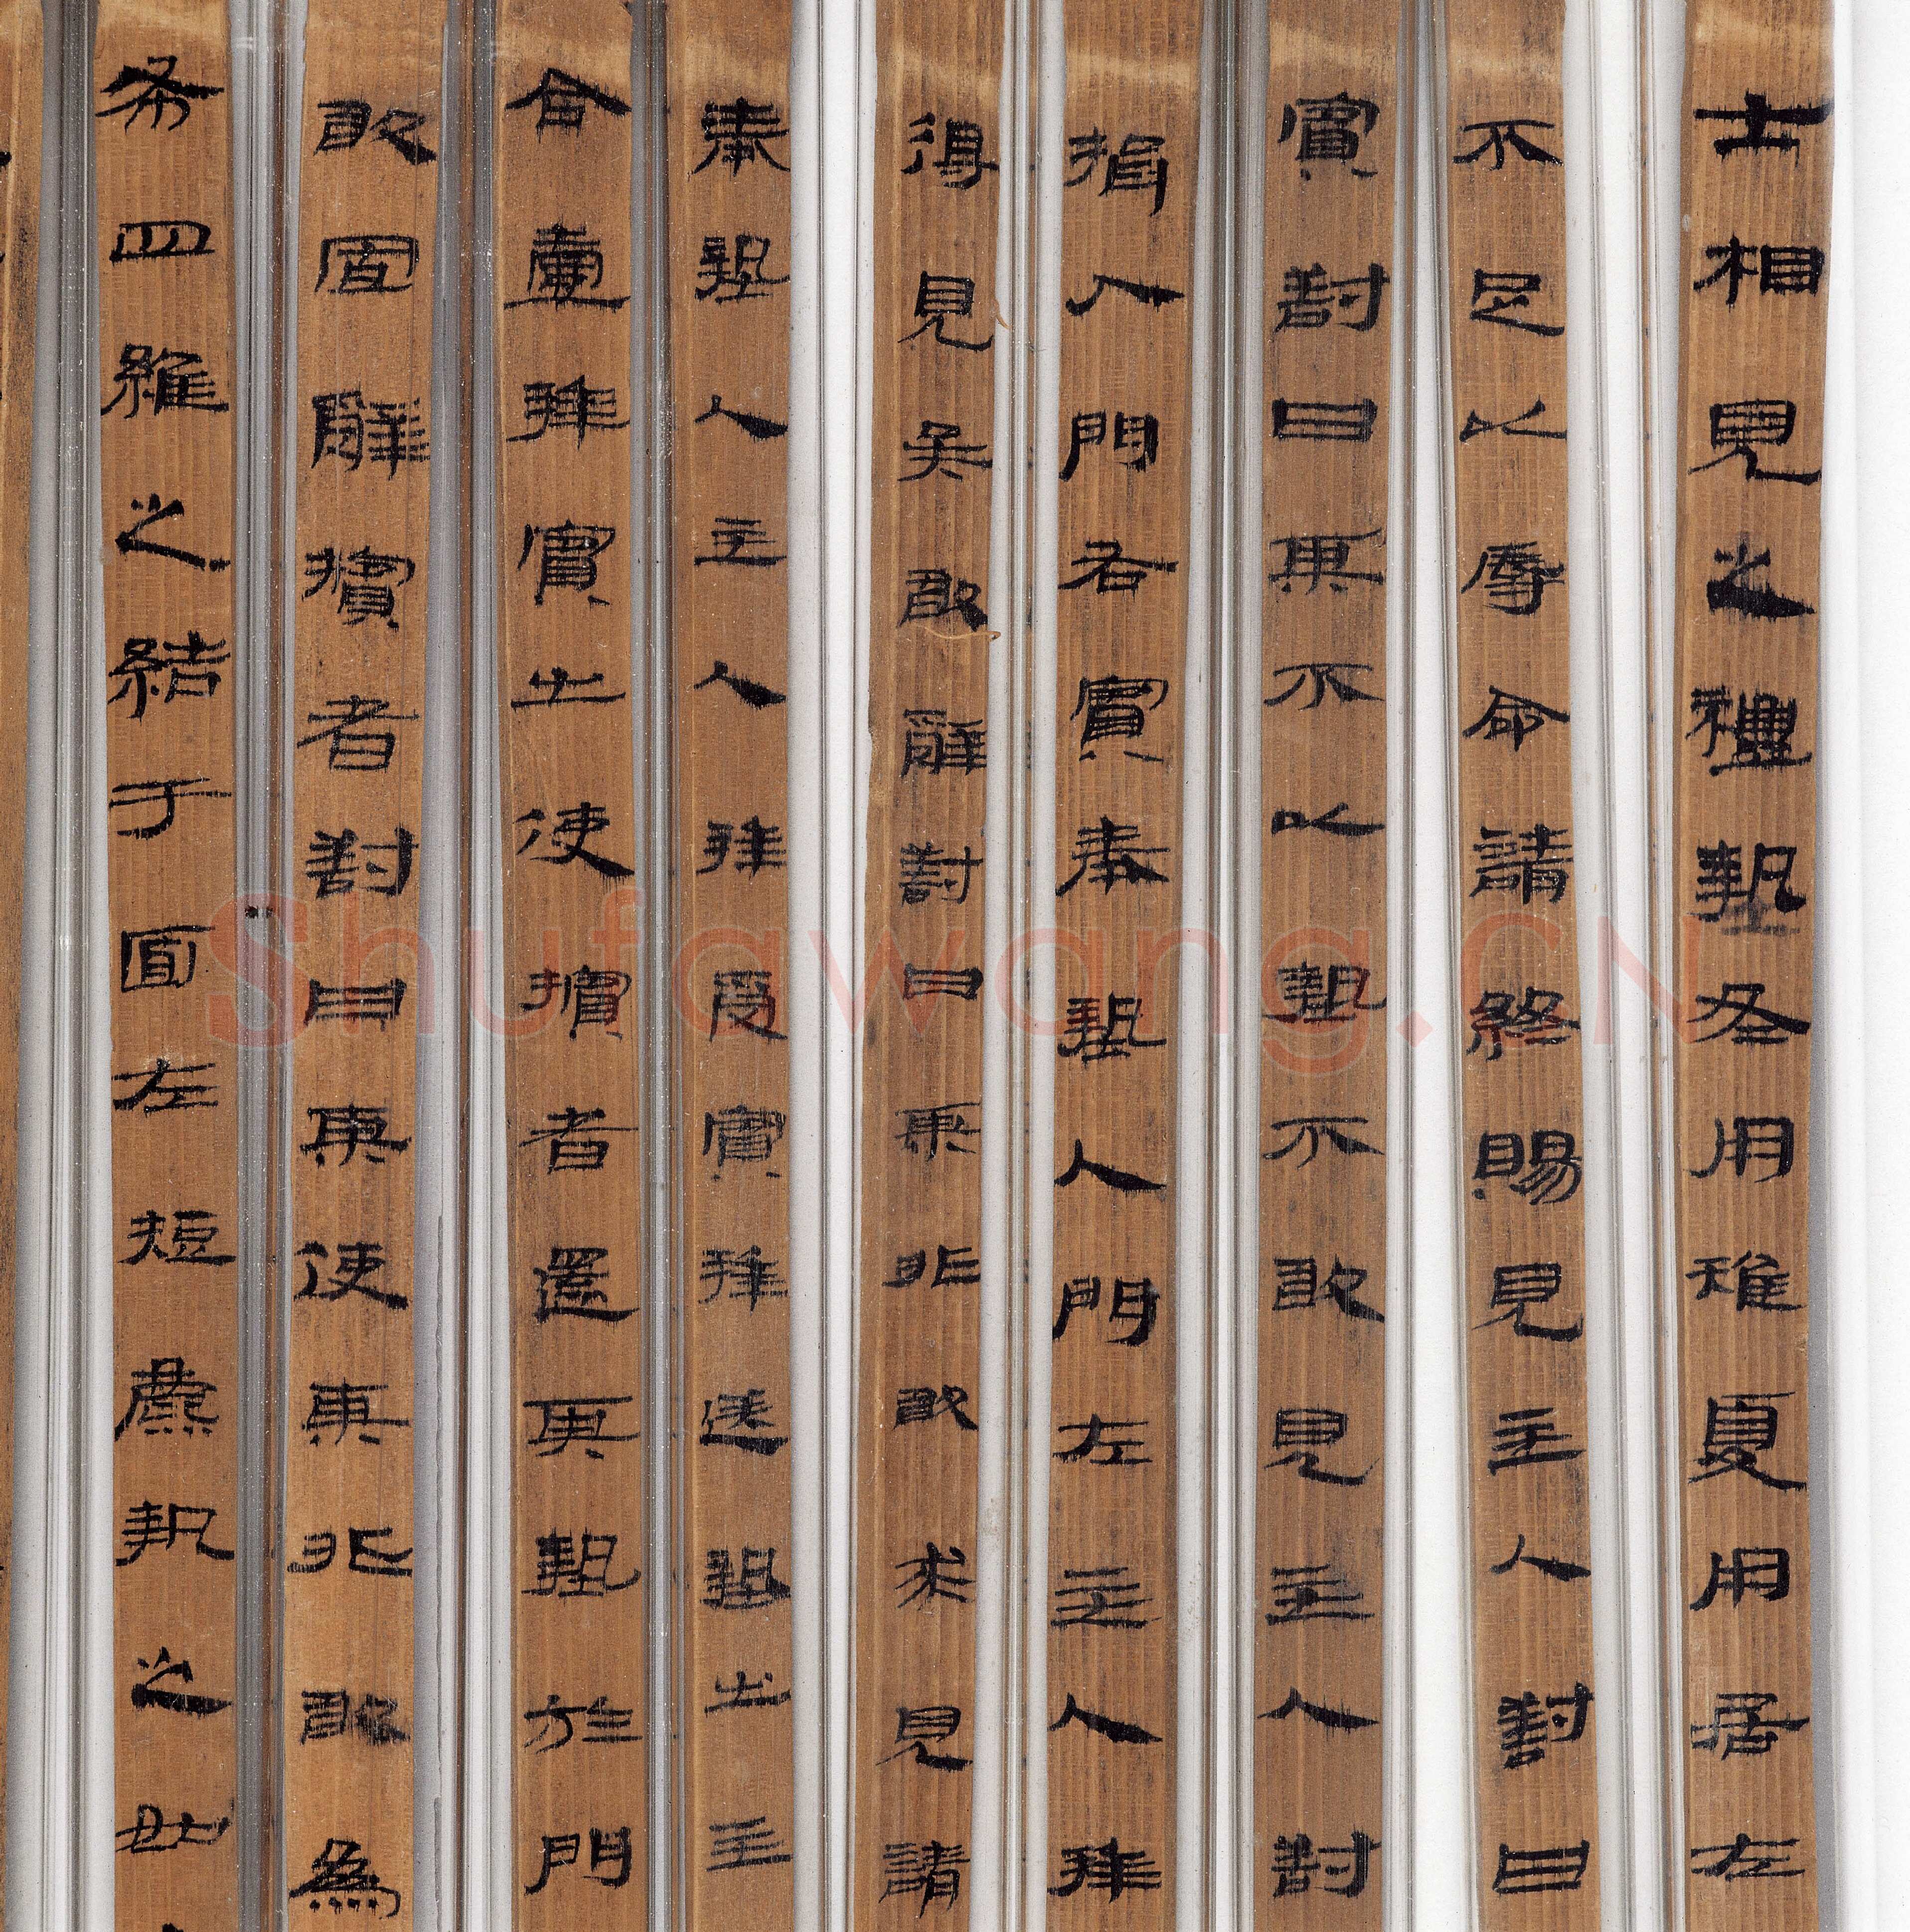 士相見之禮墊冬用雉夏用居左
不足以辱命請終賜見主人對曰
賓對曰某不以墊不敢見主人對
揖入門右賓奉墊入門左主人拜
得見矣敢辭對曰某非敢求見請
奉墊入主人拜受賓拜送墊出主
合壹拜賓出使擯者還某墊於門
敢固辭擯者對曰某使某非敢為
布四維之結于面左短麋執之如
Shufawang.CN